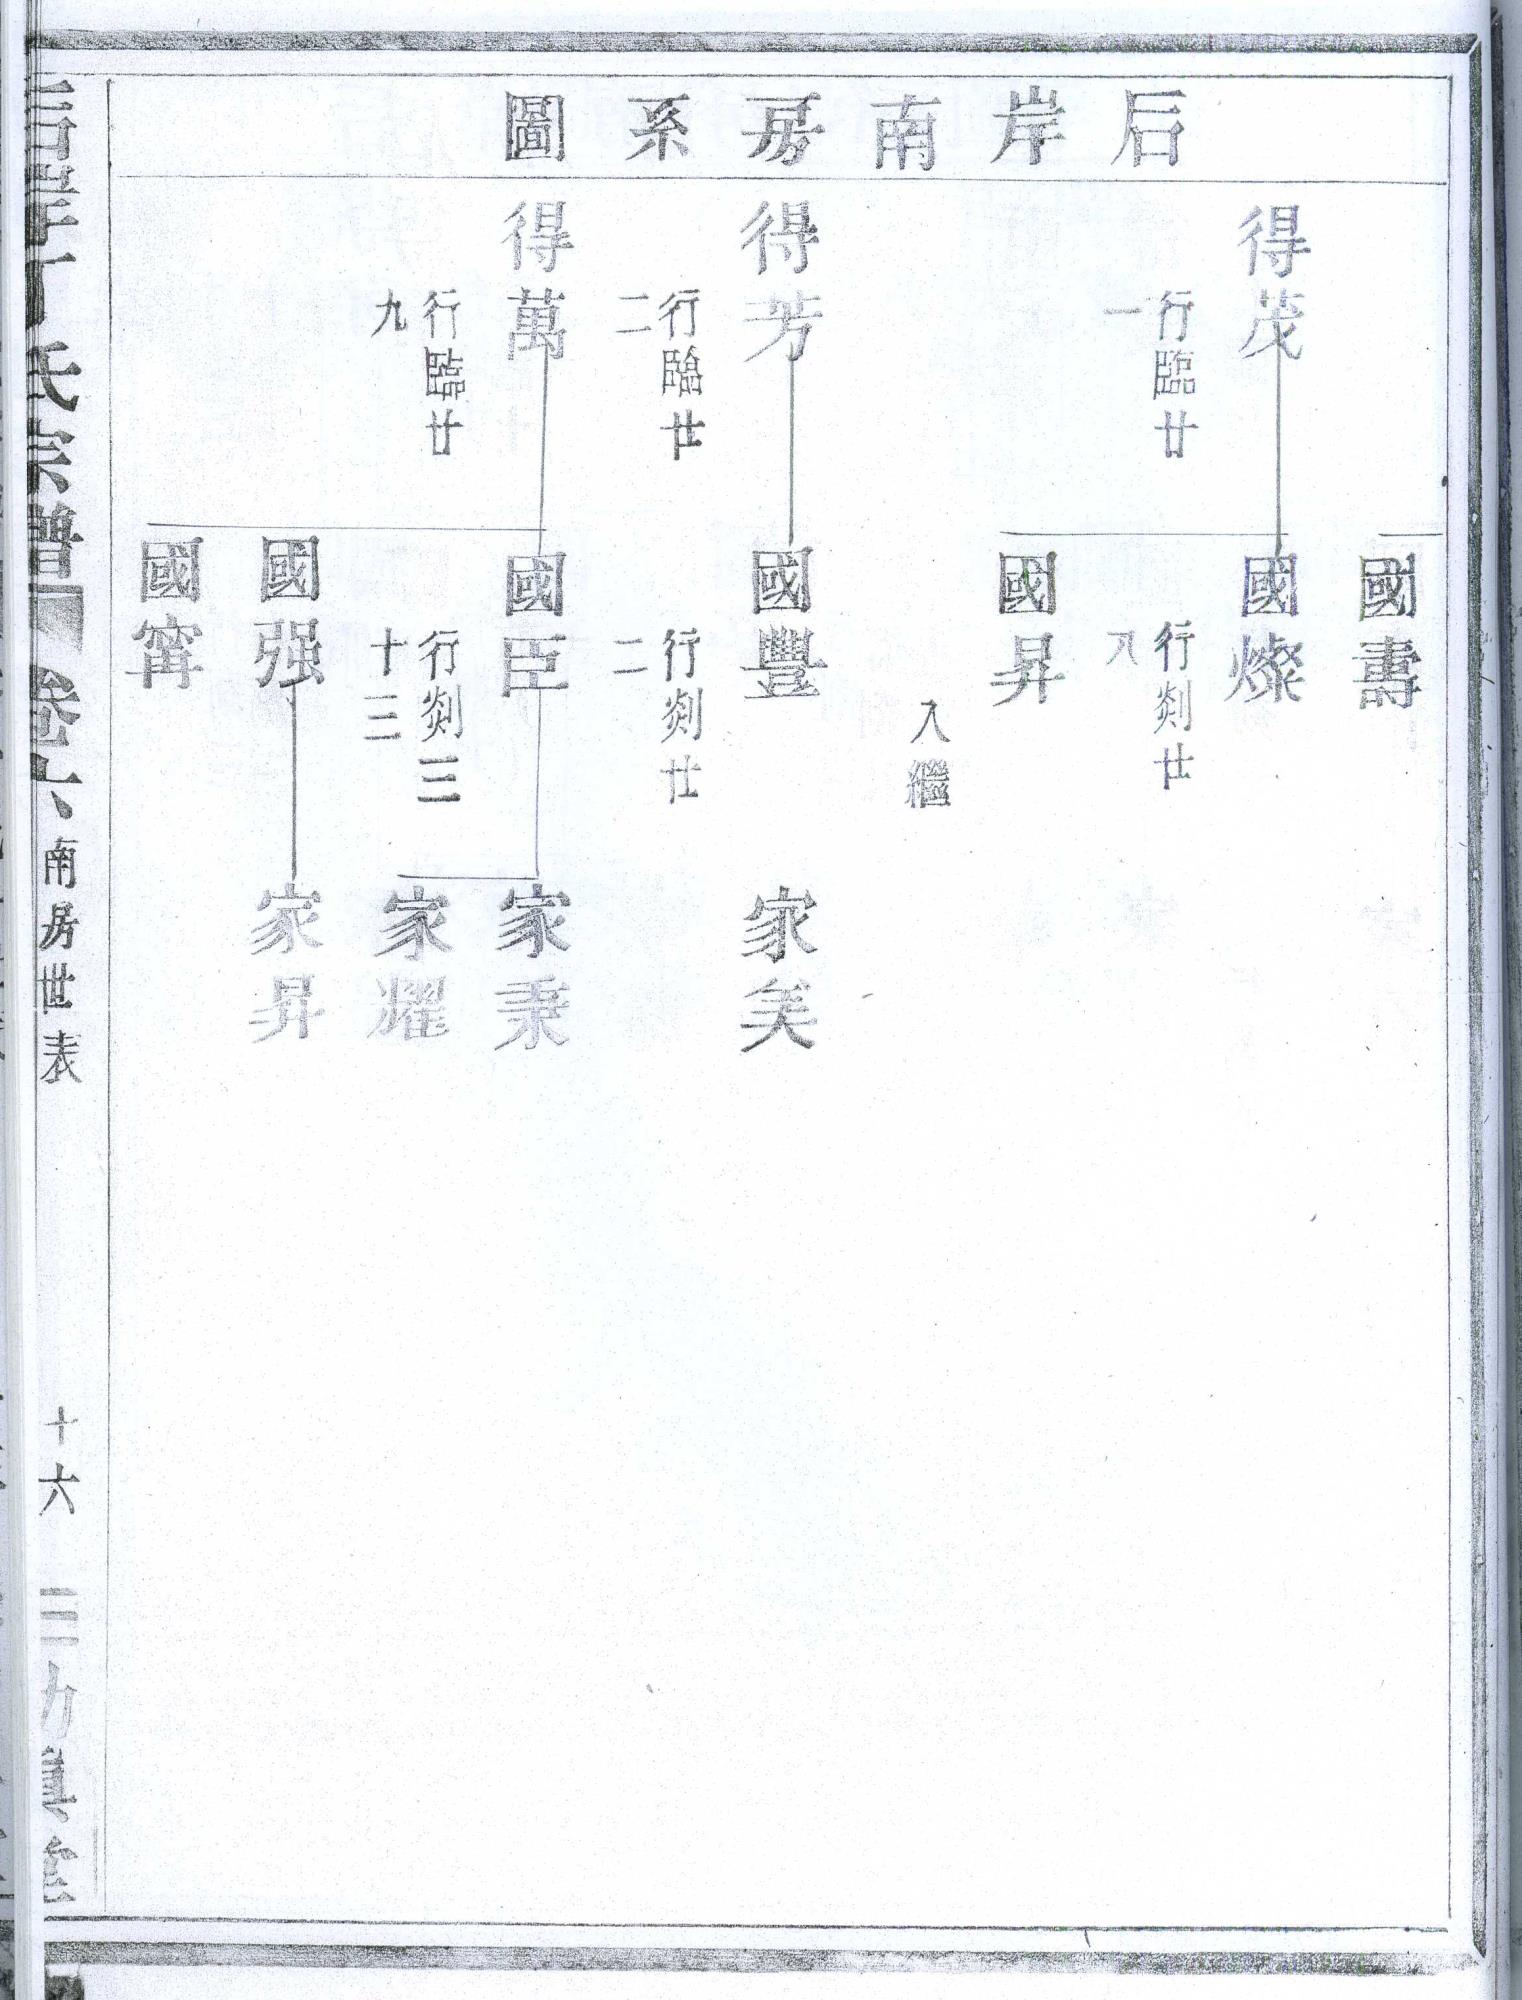 后岸南房系圖
國壽
得茂
行臨廿
一
國燦
行剡廿
八
國昇
入繼
得芳
行臨廿
二
國豐
行剡廿
二
家美
得萬
行臨廿
九
國臣
行剡三
十三
家秉
家耀
國强
家昇
國寗
后岸丁氏宗譜 卷六 南房世表 十六